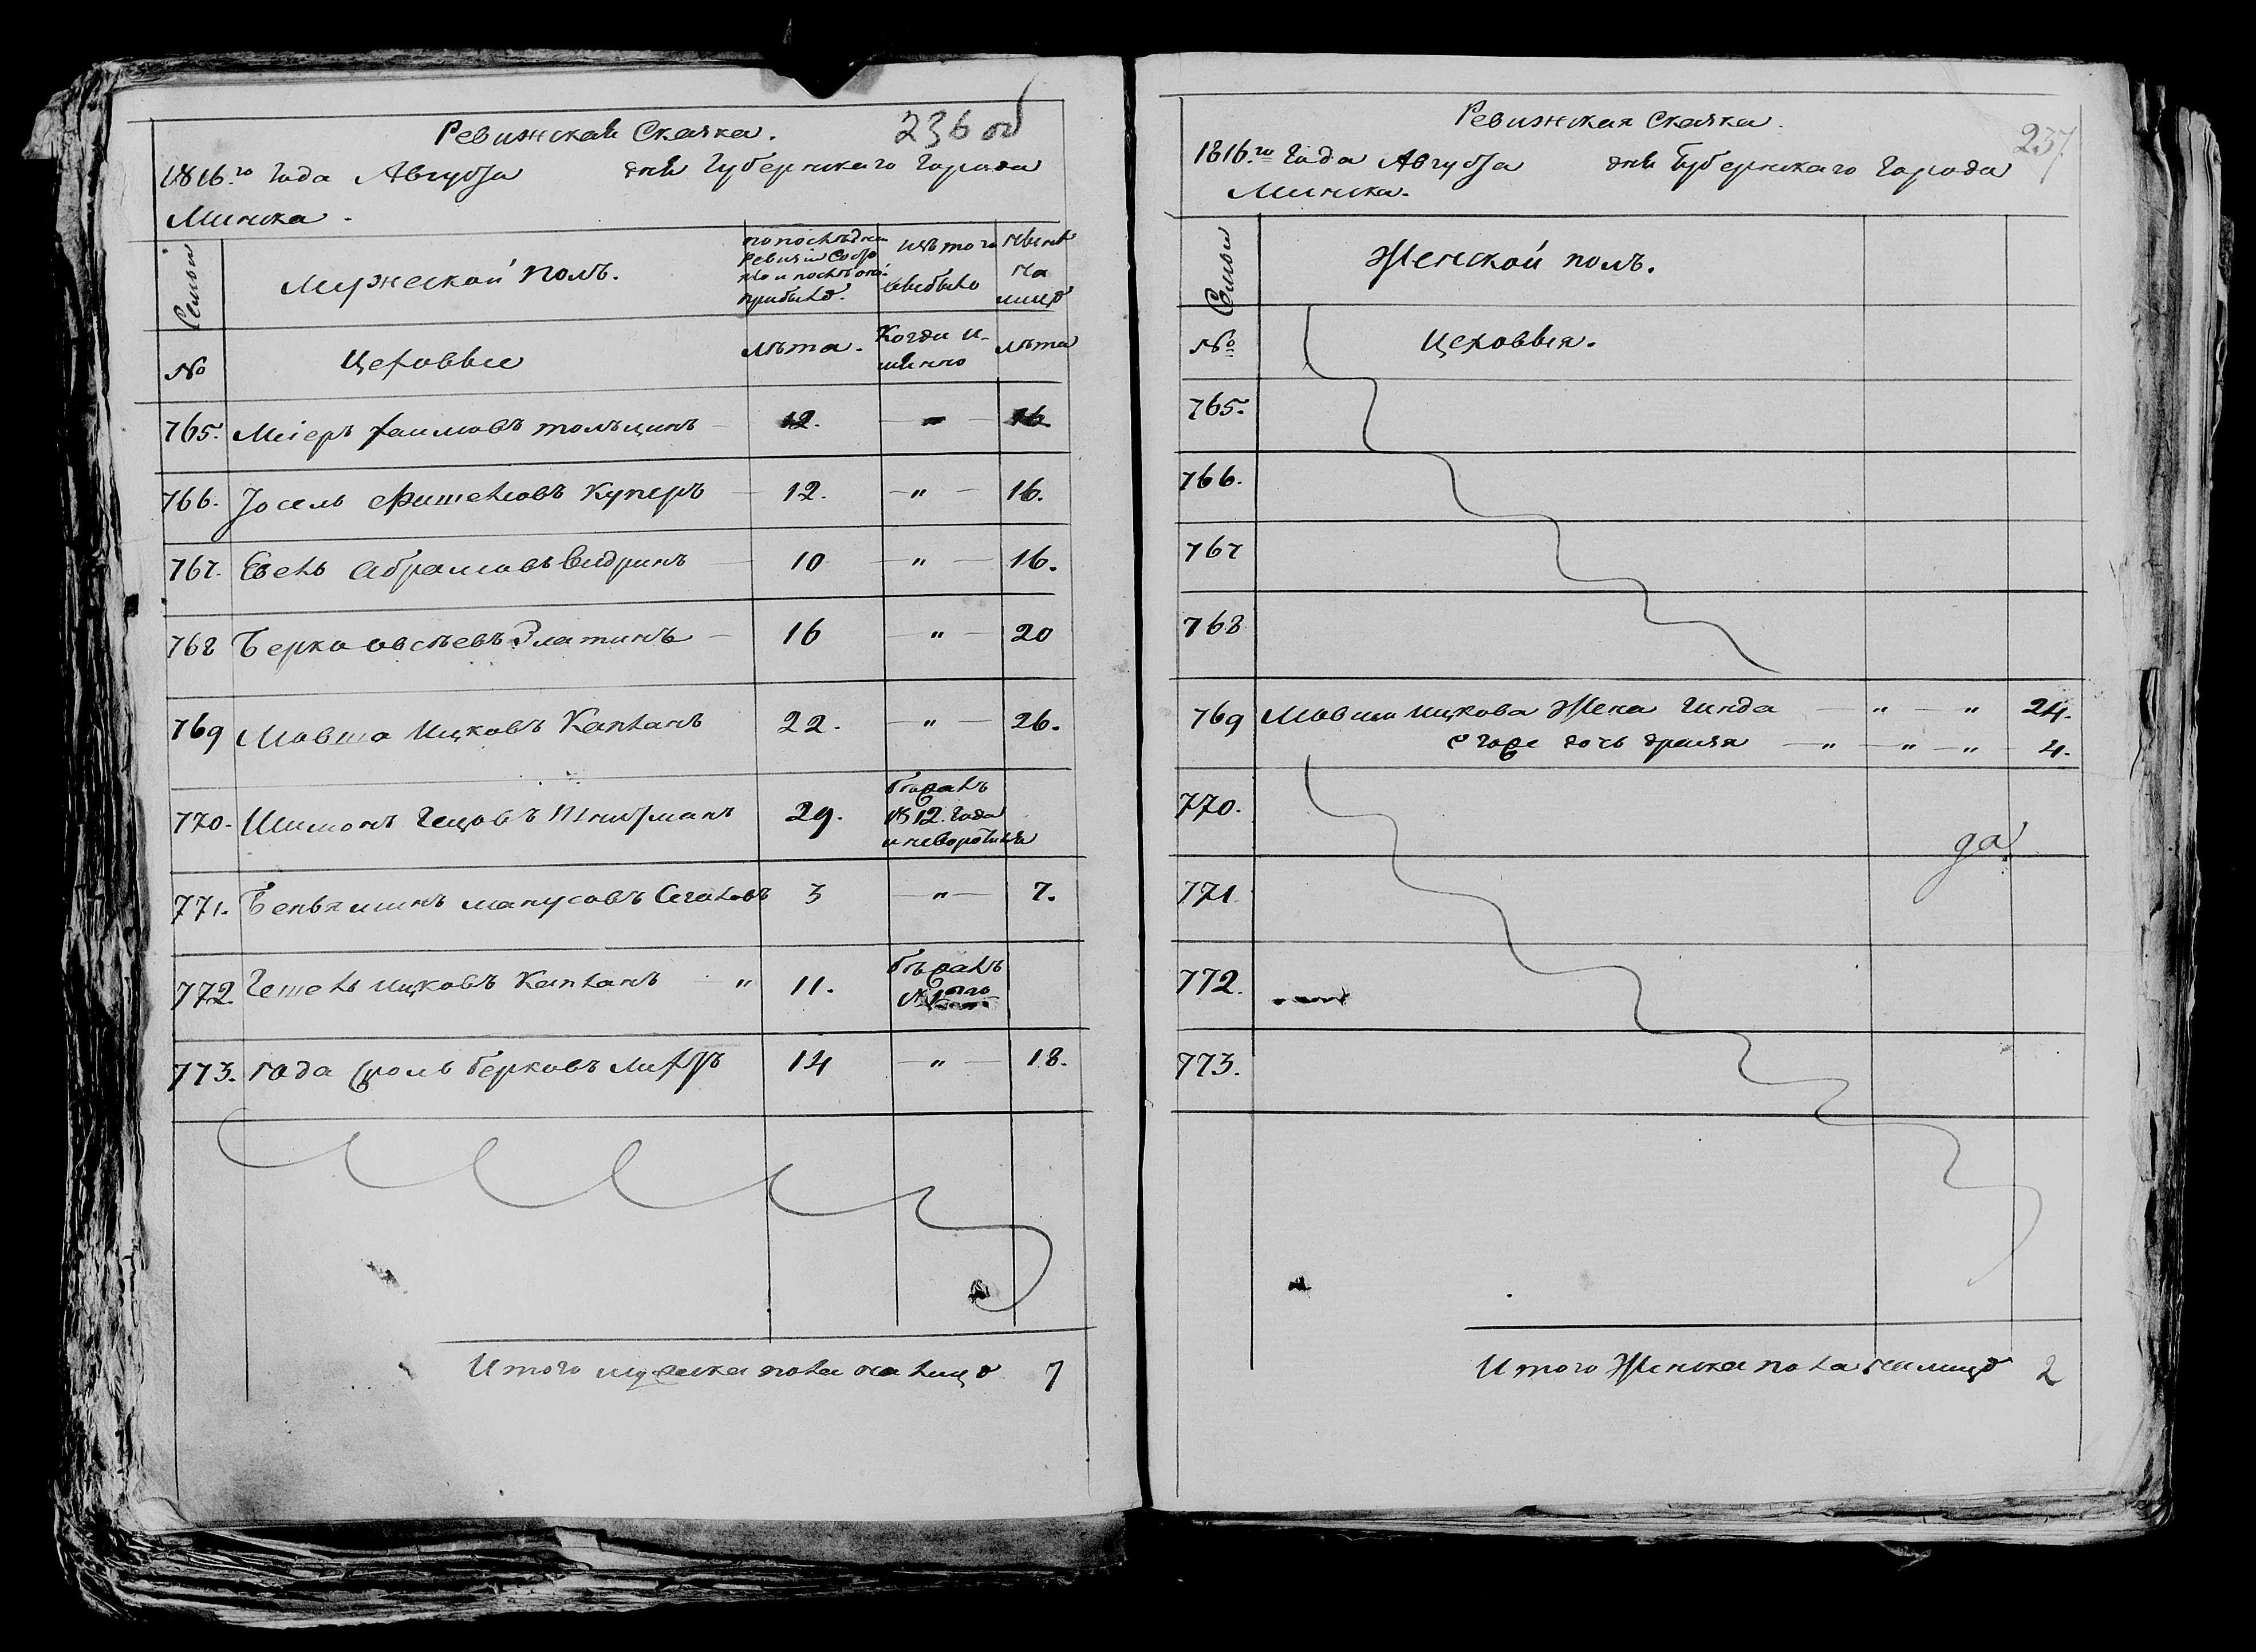 Ревижская Сказка. 236 об
1816.го Года Августа дня Губернскаго Города
Минска.
Семьи
Мужеской полъ.
по последней
Ревизии состо
яло и после оной
прибыло.
изъ того
выбыло
ныне
на
лицо
№
Цеховые
лѣта.
Когда и-
менно
лѣта
765. Меіеръ Хаимовъ 12. — " — 16.
766. Іосель Фишелювъ Куперъ — 12. — " — 16.
767. Евель Абрамовъ Видринъ — 10 — " — 16.
768 Берка Овсѣевъ Златинъ — 16 — " — 20
769 Мовша Ицковъ Капланъ 22. — " — 26.
770. Шимонъ 29.
бѣжалъ
1812. Года
и неворотился
771. Беньяминъ Манусовъ 3 — " — 7.
772. Гешель Ицковъ Капланъ — " 11.
бѣжалъ
773. Сроль Берковъ 14 — " — 18.
Итого мужеска пола на лицо 7
Ревижская Сказка.
237
1816.го Года Августа дня Губернскаго Города
Минска.
Семьи
Женской полъ.
№
Цеховыя.
765.
766.
767
768
769 Мовши Ицкова Жена Гинда — " — " 24.
Его же дочь — " — " — " — 4.
770.
да
771.
772.
773.
Итого Женска пола на лицо 2